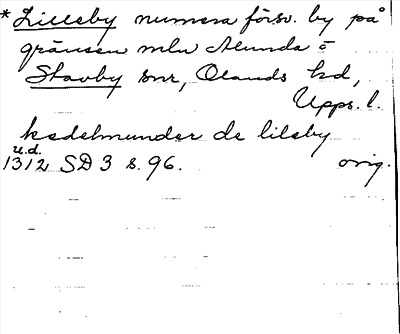 * Lillsby numera försv. by på
gränsen mln Alunda o
Stavby snr, Olands hd,
Upps. l.
ksdelmunder de lilsby
u.d.
1312 SD 3 s. 96. orig.